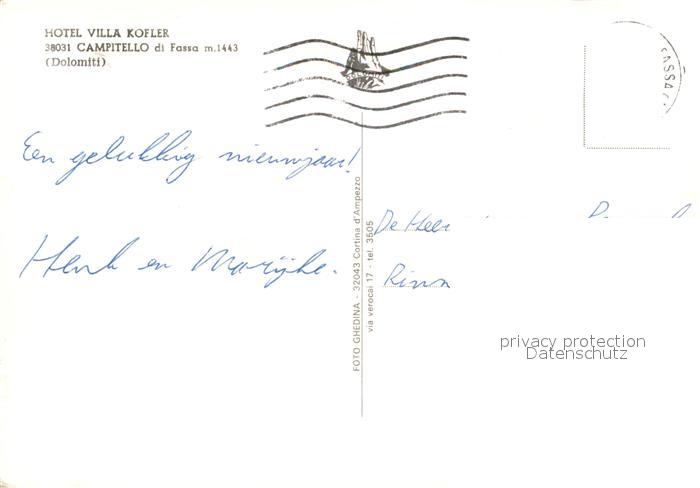 HOTEL VILLA KOFLER
38031 CAMPITELLO di Fassa m.1443
(Dolomiti)
Een gelukkig nieuwjaar!
Henk en Marijke.
FOTO GHEDINA - 32043 Cortina d'Ampezzo
via verocai 17 - tel. 3505
De Heer
privacy protection
Datenschutz